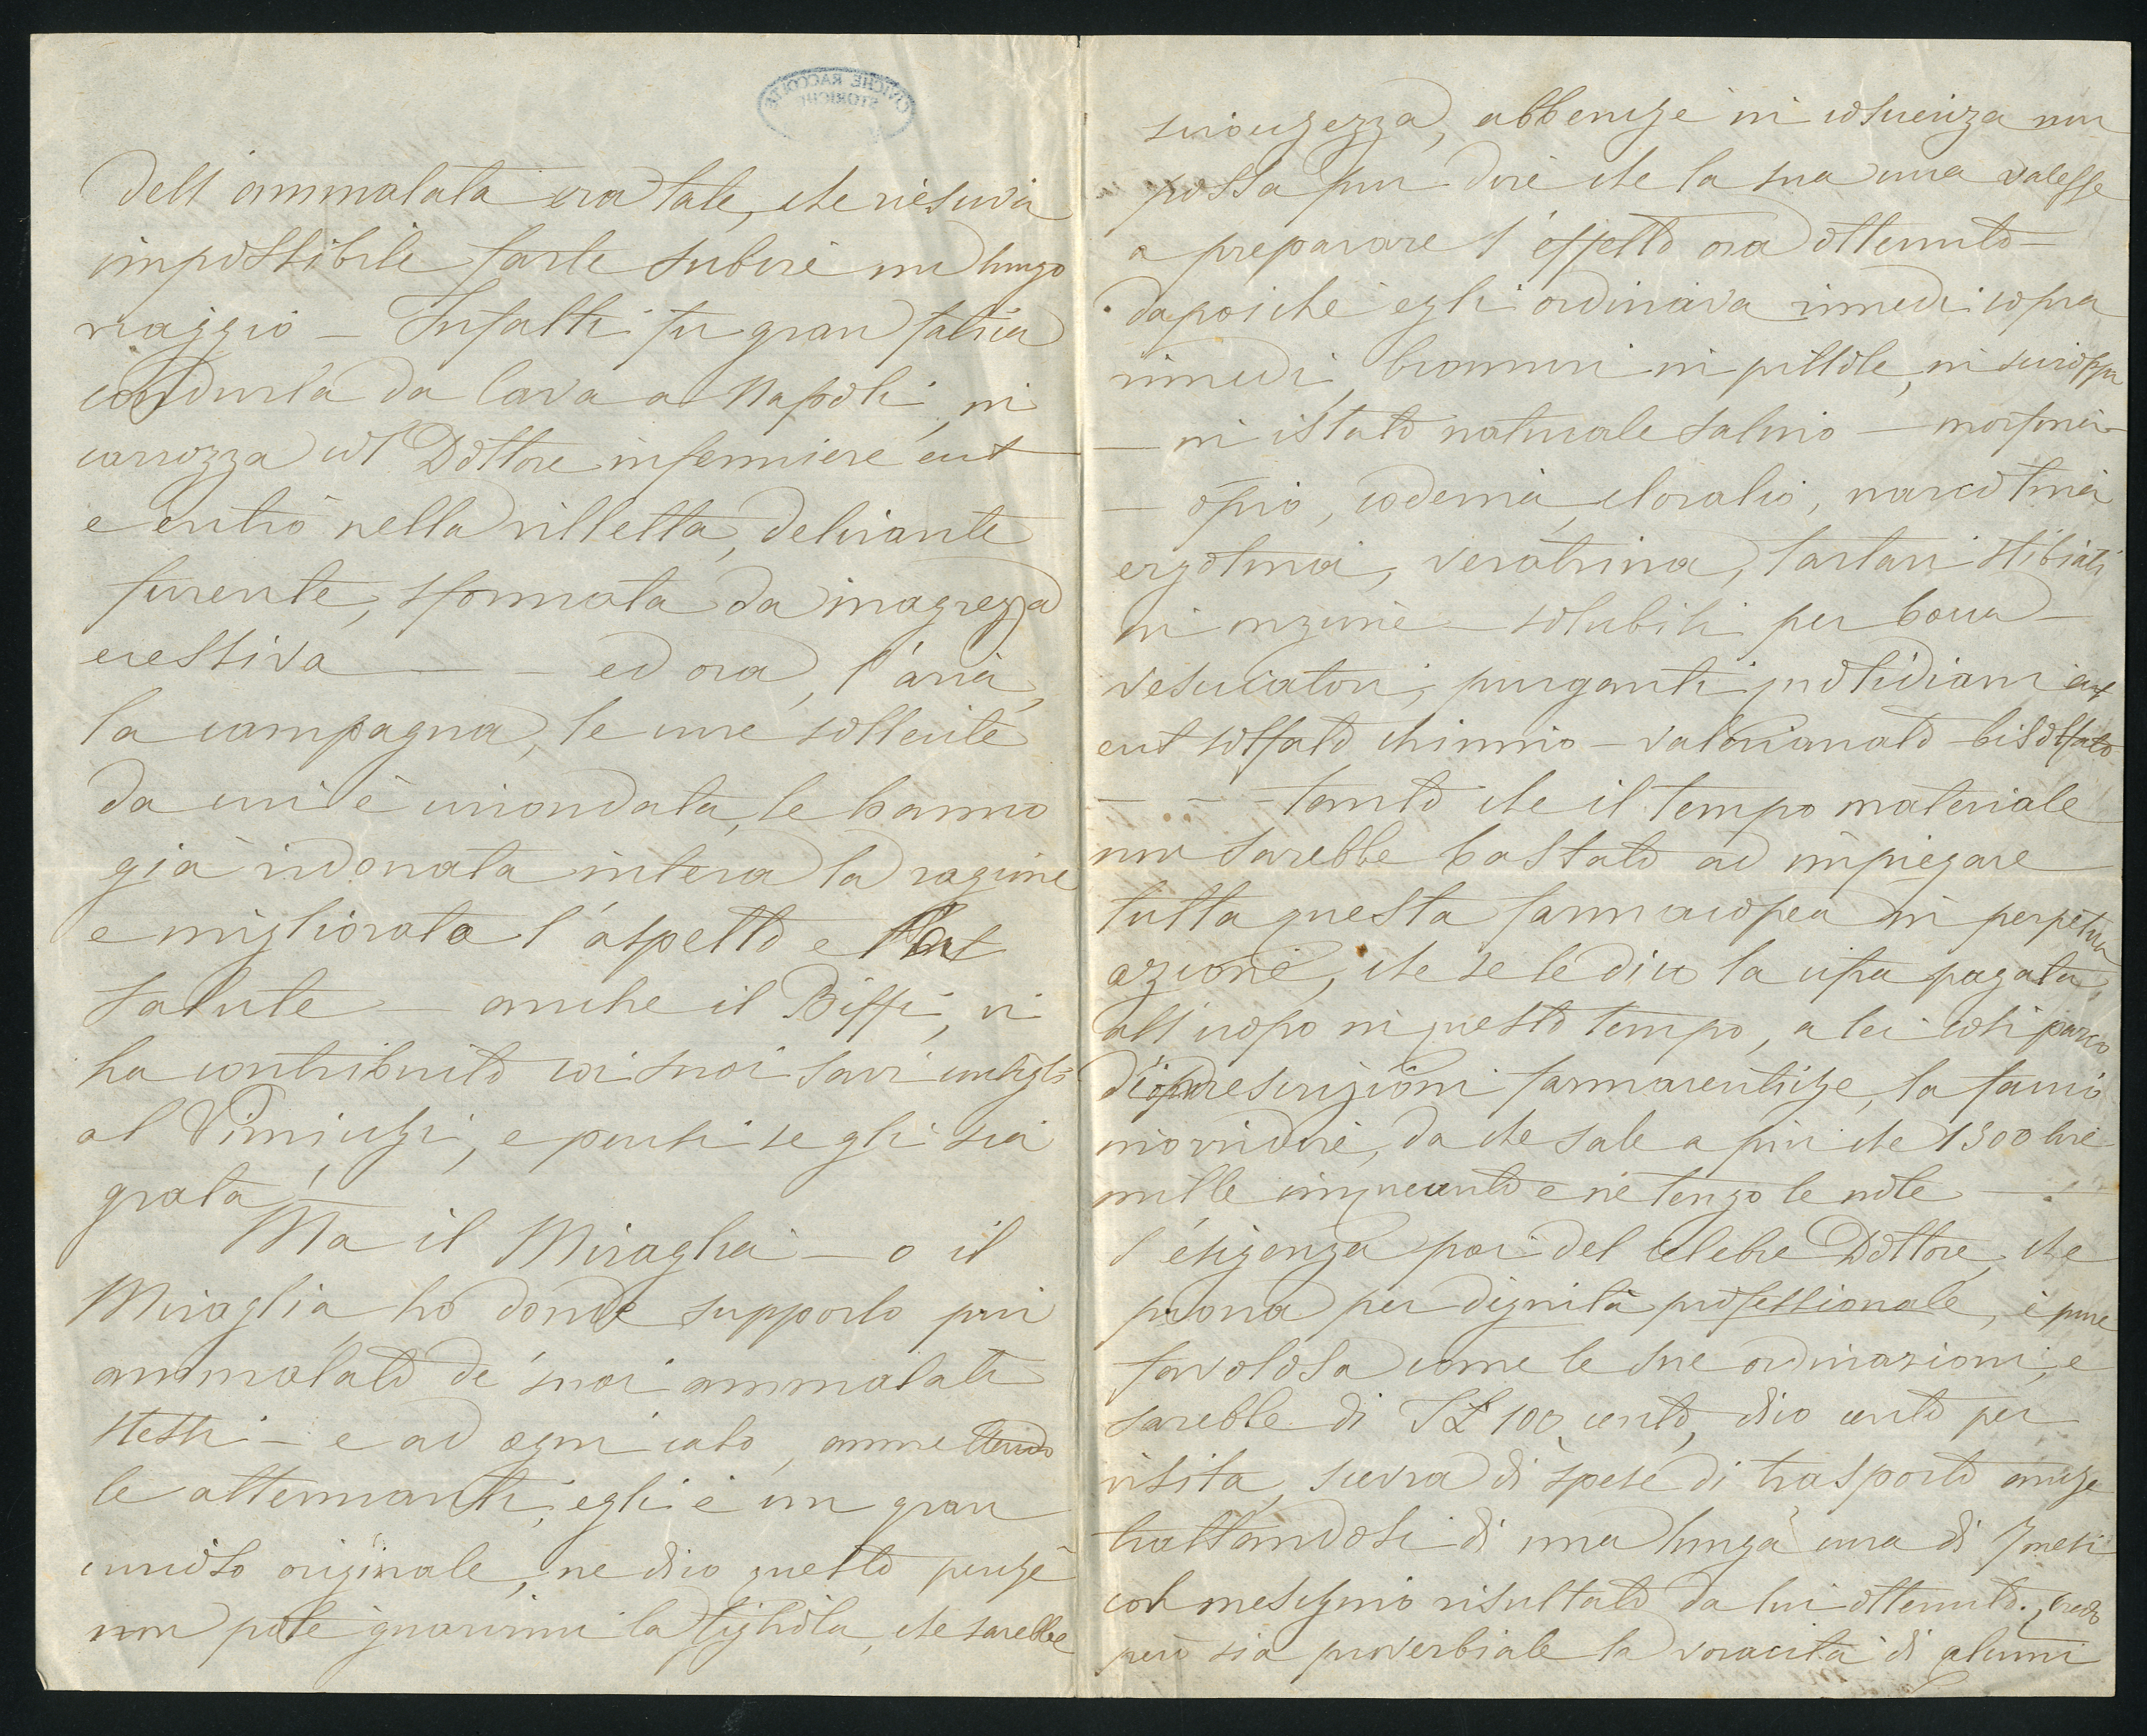 CIVICHE RACCOLTE
STORICHE
dell'ammalata era tale, che riesciva
impossibile farle subire un lungo
viaggio — Infatti fu gran fatica
condurla da Cava a Napoli, in
carrozza col Dottore infermiere ect
e entrò nella villetta, delirante
furente, sformata da magrezza
eccessiva — — ed ora, l'aria,
la campagna, le cure sollecite
da cui è circondata, le hanno
già ridonata intera la ragione
e migliorata l'aspetto e la
salute — anche il Biffi, vi
ha contribuito coi suoi savi consigli
al Vimiughi, e pensi se gli sia
grata!
Ma il Miraglia — o il
Miraglia, ho donde supporlo più
ammalato de' suoi ammalati
stessi — e ad ogni caso, ammettendo
le attenuanti, egli è un gran
curioso originale, ne dico questo perchè
non potè guarirmi la figliola, che sarebbe
sciocchezza, abbenchè in coscienza non
possa pur dire che la sua cura valesse
a preparare l'effetto ora ottenuto —
dapoichè egli ordinava rimedi sopra
rimedi, bromuri in pillole, in sciroppi
— in istato naturale salino — morfina
— opio, codeina, cloralio, narcotina
ergotina, veratrina, tartari stibiati
in unzione — solubili per bocca —
vescicatori, purganti quotidiani ect
ect solfato chinino — valerianato — bisolfato
— - - - tanto che il tempo materiale
non sarebbe bastato ad impiegare
tutta questa farmacopea in perpetua
azione, che se le dico la cifra pagata
all'uopo in questo tempo, a lei così parco
di prescrizioni farmaceutiche, la faccio
inorridire, da che sale a più che 1500 lire —
mille cinquecento e ne tengo le note —
l'esigenza poi del celebre Dottore, che
suona per dignità professionale, è pure
favolosa come le sue ordinazioni, e
sarebbe di L 100 cento, dico cento per
visita, scevra di spese di trasporto anche
trattandosi di una lunga cura di 7 mesi
col meschino risultato da lui ottenuto. Credo
però sia proverbiale la voracità di alcuni